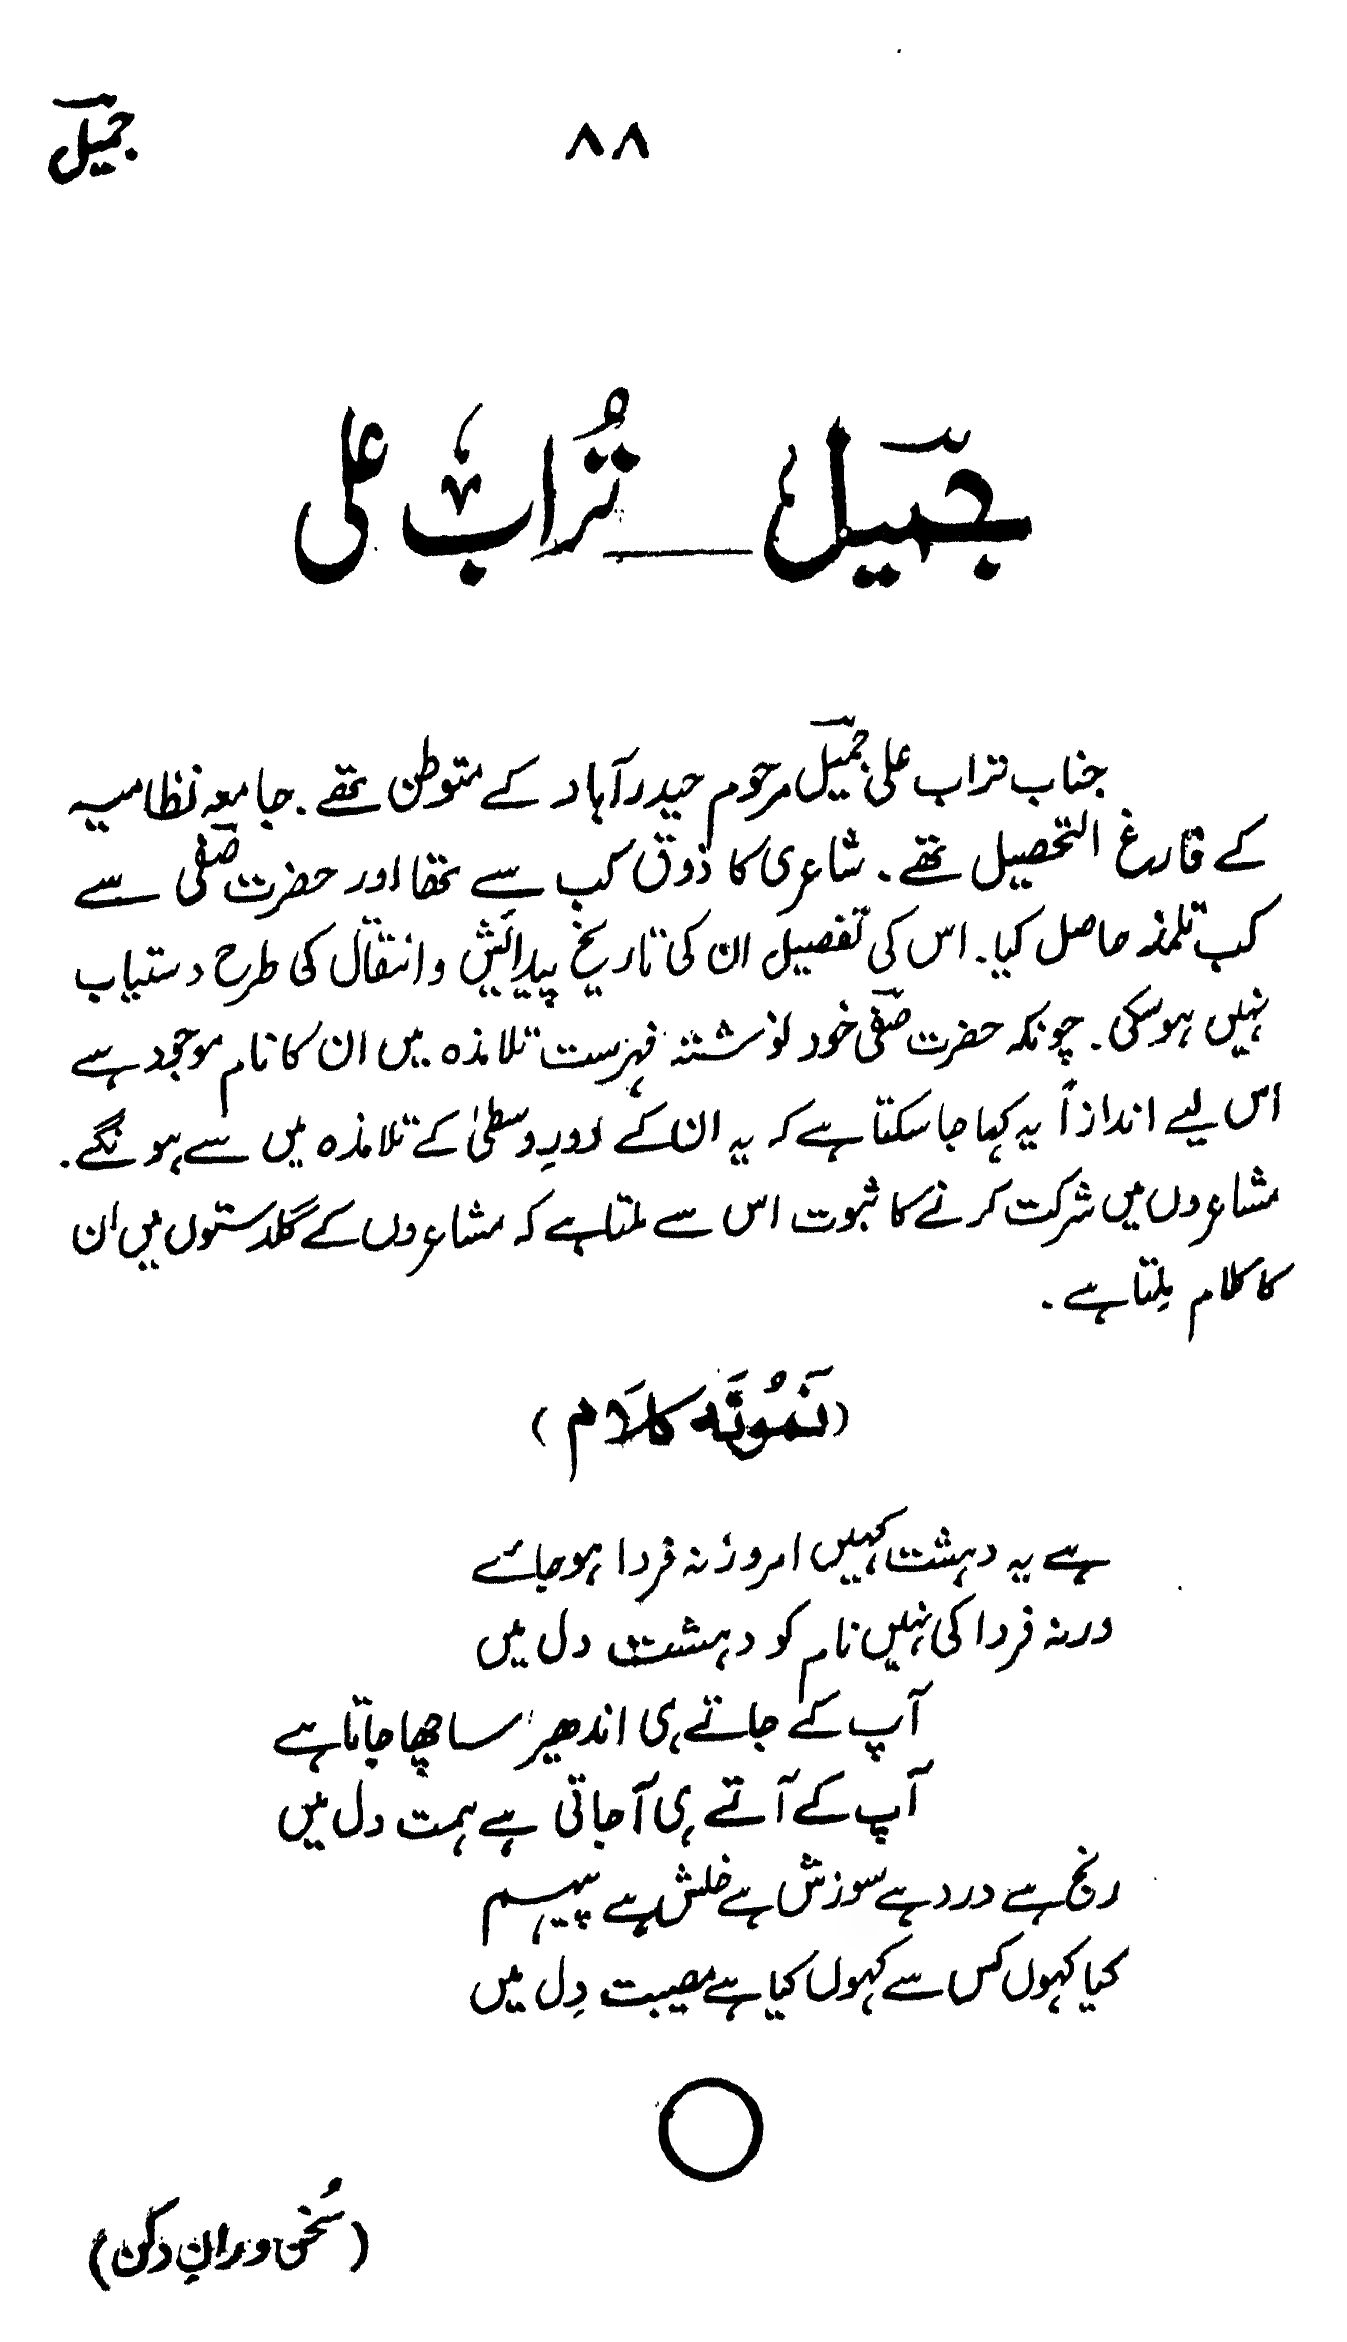 جمیلؔ
۸۸
جمیلؔ ــــ تُراب علی
جناب تراب علی جمیلؔ مرحوم حیدرآباد کے متوطن تھے۔ جامعہ نظامیہ
کے فارغ التحصیل تھے۔ شاعری کا ذوق کب سے تھا اور حضرت صفیؔ سے
کب تلمذ حاصل کیا۔ اس کی تفصیل ان کی تاریخ پیدائش و انتقال کی طرح دستیاب
نہیں ہوسکی۔ چونکہ حضرت صفیؔ خود نوشتہ فہرست تلامذہ میں ان کا نام موجود ہے
اس لیے اندازاً یہ کہا جا سکتا ہے کہ یہ ان کے دورِ وسطیٰ کے تلامذہ میں سے ہونگے۔
مشاعروں میں شرکت کرنے کا ثبوت اس سے ملتا ہے کہ مشاعروں کے گلدستوں میں ان
کا کلام مِلتا ہے۔
(نَمُونَہ کَلَام)
ہے یہ دہشت کہیں امروز نہ فردا ہوجائے
ورنہ فردا کی نہیں نام کو دہشت دل میں
آپ کے جاتے ہی اندھیر سا چھا جاتا ہے
آپ کے آتے ہی آجاتی ہے ہمت دل میں
رنج ہے درد ہے سوزش ہے خلش ہے پیہم
کیا کہوں کس سے کہوں کیا ہے مصیبت دِل میں
(سُخن ورانِ دکن)